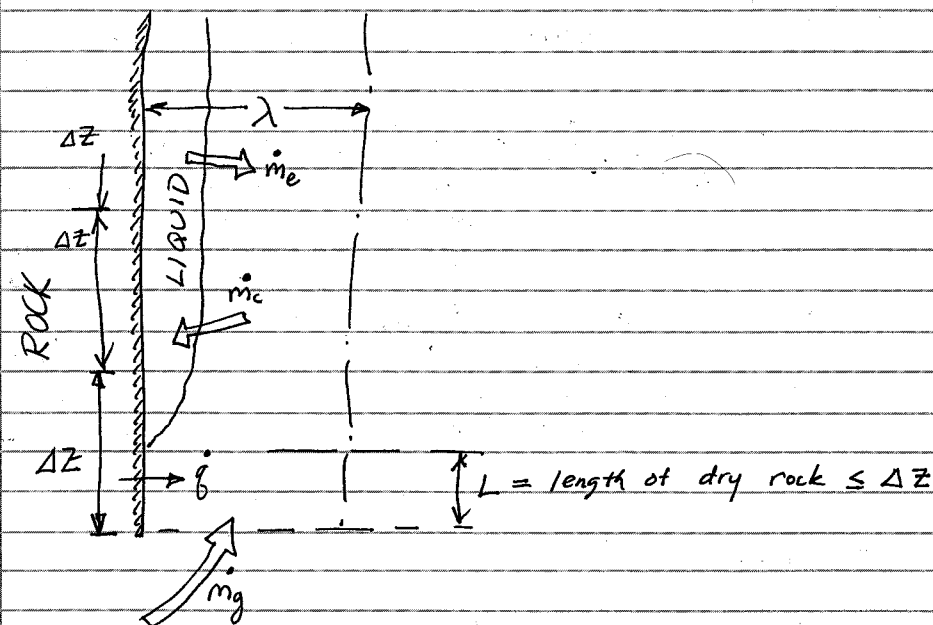 λ
ΔZ
ṁe
ΔZ
LIQUID
ROCK
ṁc
ΔZ
q̇
L = length of dry rock ≤ ΔZ
ṁg